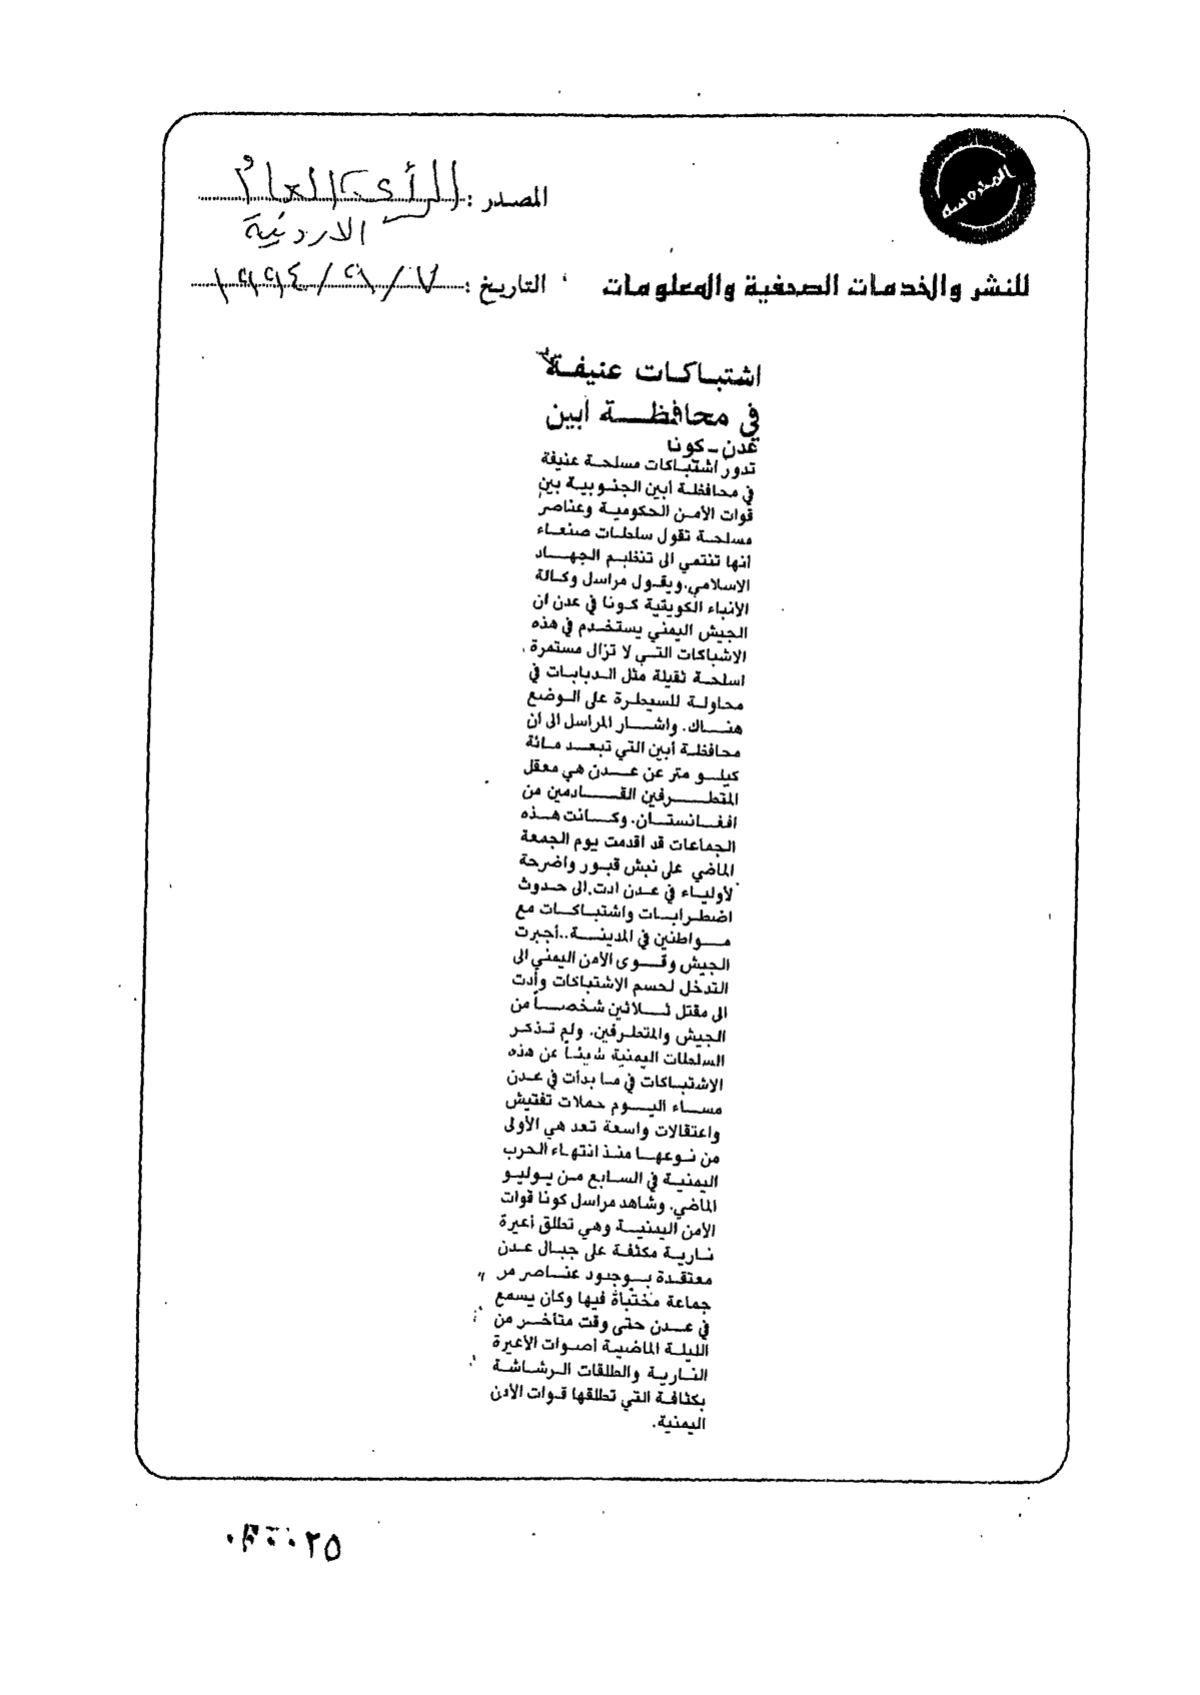 المحروسة
المصدر : الرأي العام
الاردنية
للنشر والخدمات الصحفية والمعلومات
التاريخ : ٧ / ٩ / ١٩٩٤
اشتباكات عنيفة
في محافظة أبين
عدن - كونا
تدور اشتباكات مسلحة عنيفة
في محافظة أبين الجنوبية بين
قوات الأمن الحكومية وعناصر
مسلحة تقول سلطات صنعاء
انها تنتمي الى تنظيم الجهاد
الاسلامي.ويقول مراسل وكالة
الأنباء الكويتية كونا في عدن ان
الجيش اليمني يستخدم في هذه
الاشباكات التي لا تزال مستمرة
اسلحة ثقيلة مثل الدبابات في
محاولة للسيطرة على الوضع
هناك. واشار المراسل الى ان
محافظة أبين التي تبعد مائة
كيلو متر عن عدن هي معقل
المتطرفين القادمين من
افغانستان. وكانت هذه
الجماعات قد اقدمت يوم الجمعة
الماضي على نبش قبور واضرحة
لأولياء في عدن ادت الى حدوث
اضطرابات واشتباكات مع
مواطنين في المدينة..أجبرت
الجيش وقوى الأمن اليمني الى
التدخل لحسم الاشتباكات وأدت
الى مقتل ثلاثين شخصاً من
الجيش والمتطرفين. ولم تذكر
السلطات اليمنية شيئاً عن هذه
الاشتباكات في ما بدأت في عدن
مساء اليوم حملات تفتيش
واعتقالات واسعة تعد هي الأولى
من نوعها منذ انتهاء الحرب
اليمنية في السابع من يوليو
الماضي. وشاهد مراسل كونا قوات
الأمن اليمنية وهي تطلق أعيرة
نارية مكثفة على جبال عدن
معتقدة بوجود عناصر من
جماعة مختبأة فيها وكان يسمع
في عدن حتى وقت متأخر من
الليلة الماضية أصوات الأعيرة
النارية والطلقات الرشاشة
بكثافة التي تطلقها قوات الأمن
اليمنية.